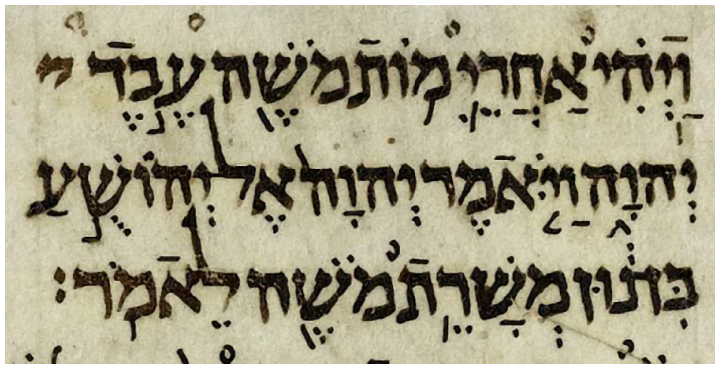 וַיְהִ֗י אַחֲרֵ֛י מ֥וֹת מֹשֶׁ֖ה עֶ֣בֶד י
יְהוָ֑ה וַיֹּ֤אמֶר יְהוָה֙ אֶל יְהוֹשֻׁ֣עַ
בִּן נ֔וּן מְשָׁרֵ֥ת מֹשֶׁ֖ה לֵאמֹֽר׃